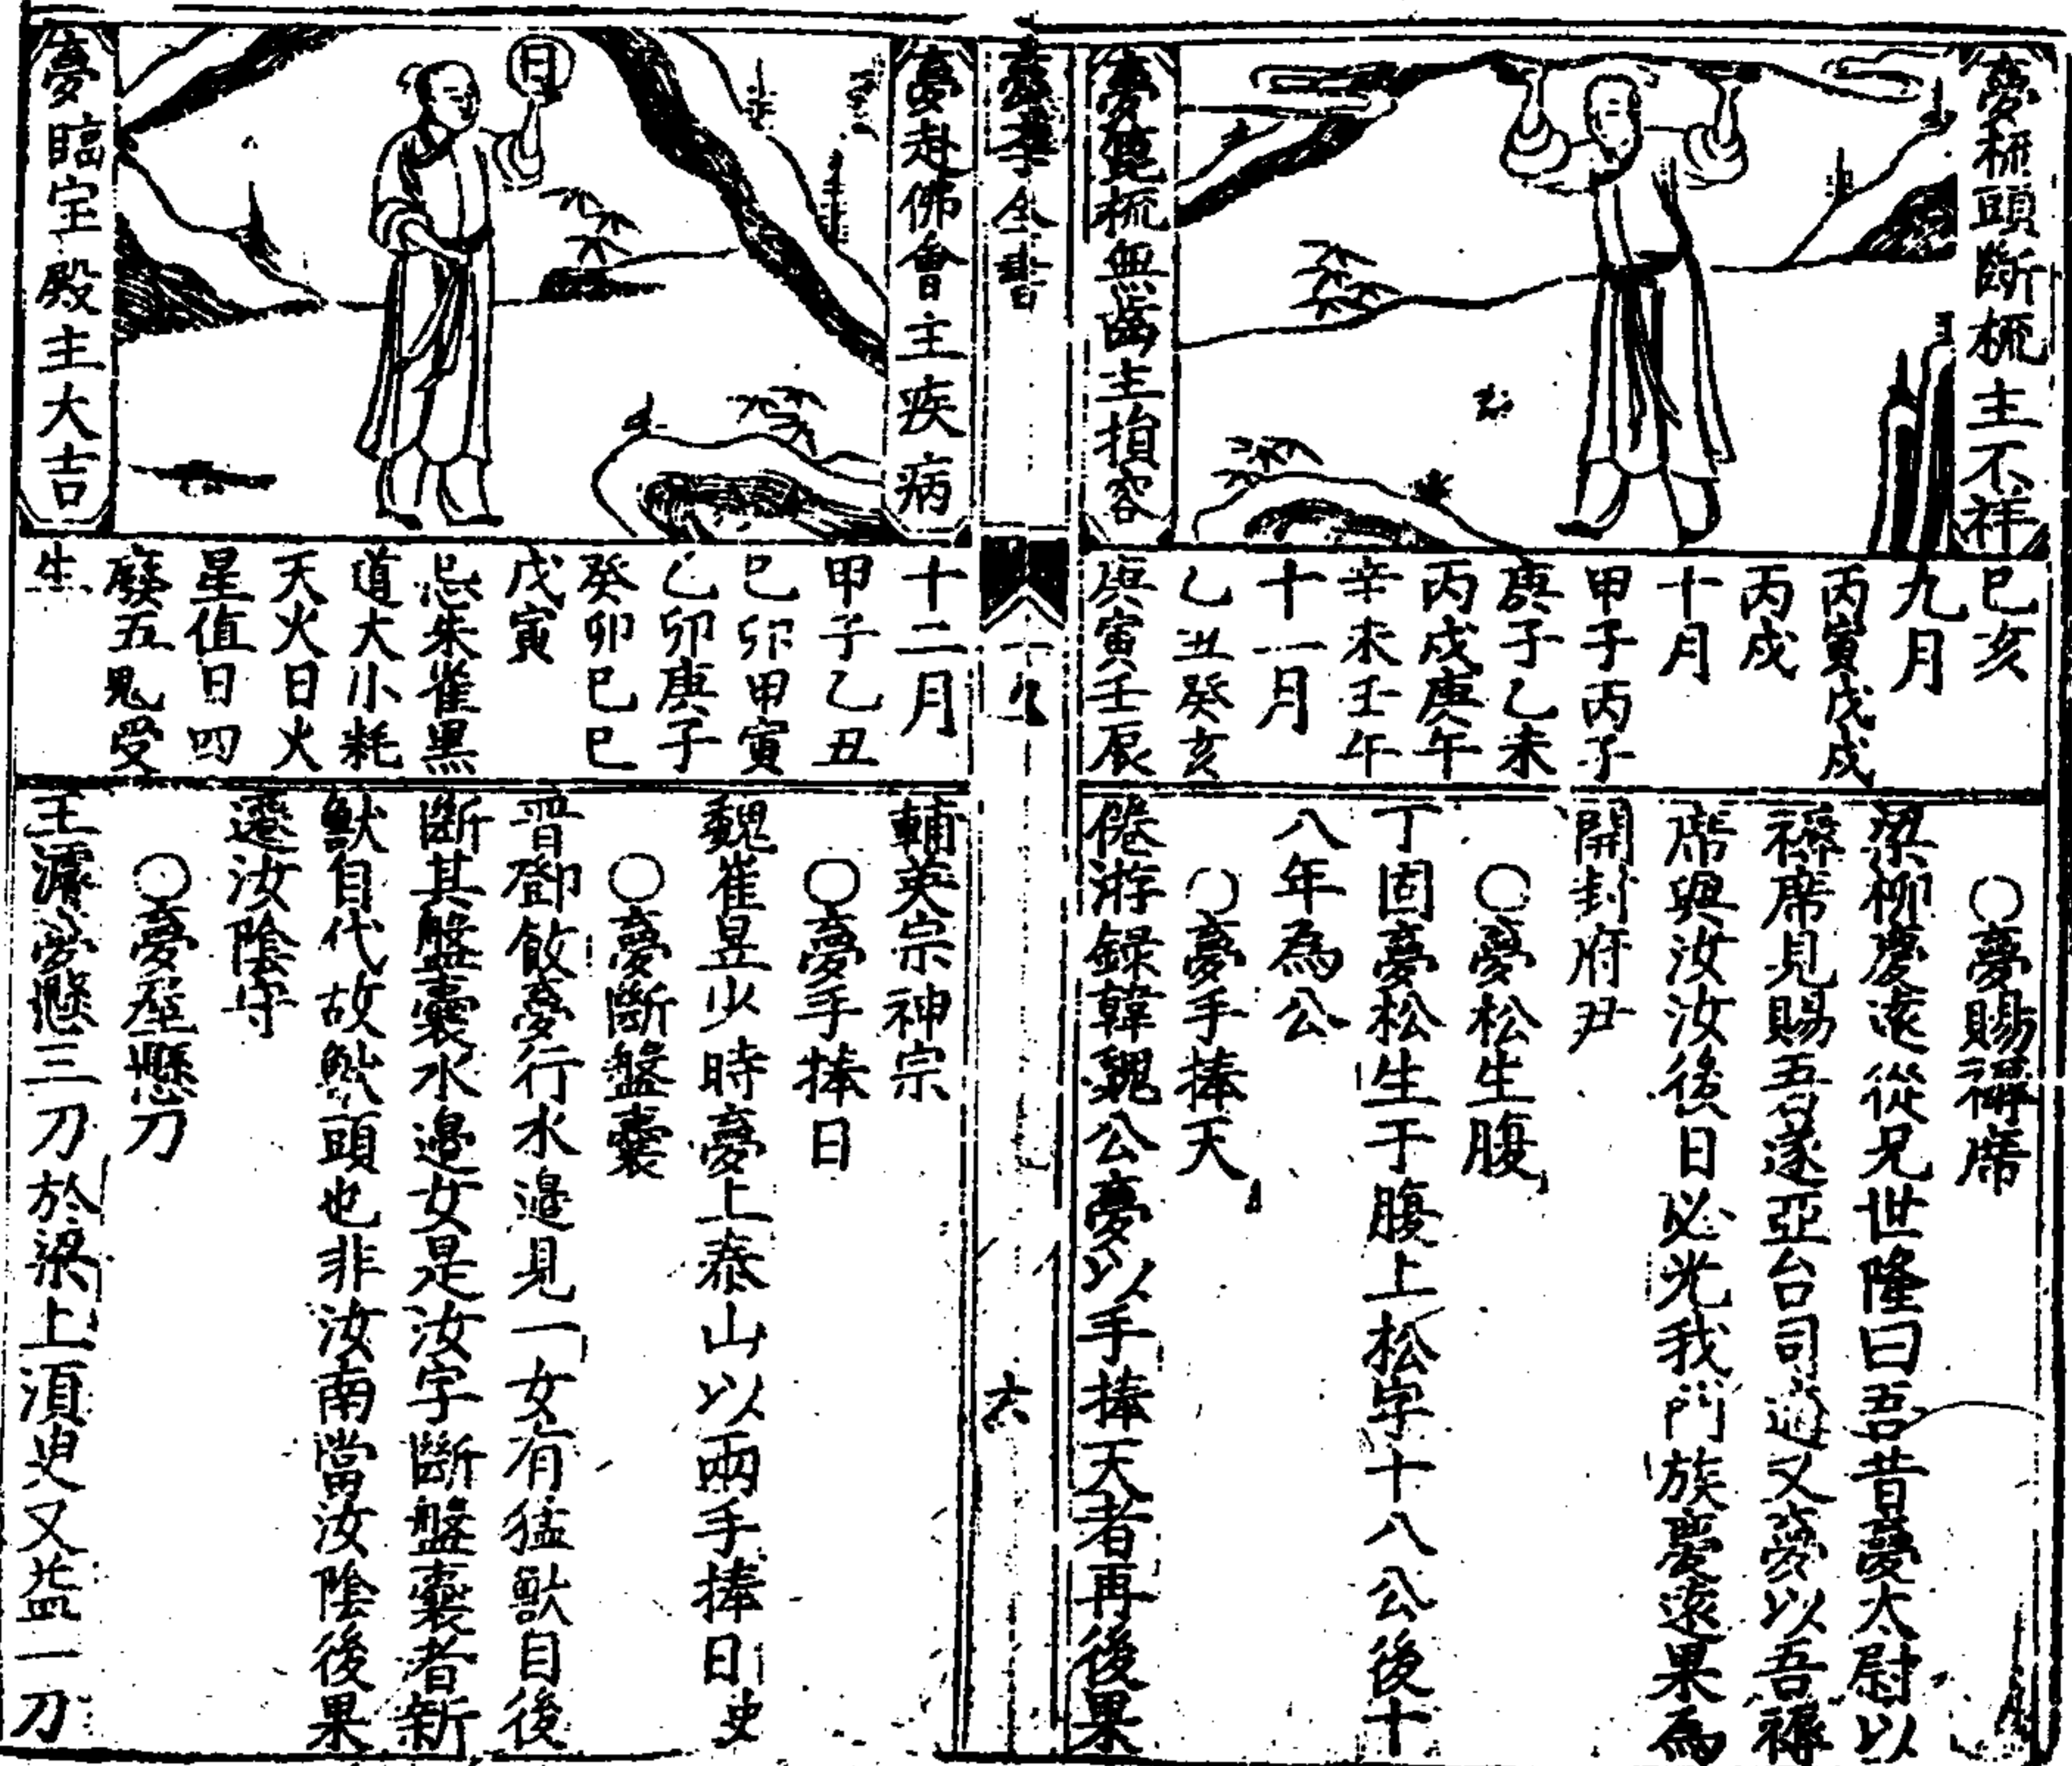 夢梳頭斷梳主不祥
夢篦梳無齒主損容
己亥
九月
丙寅戊戌
丙戌
十月
甲子丙子
庚子乙未
丙戌庚午
辛未壬午
十一月
乙丑癸亥
庚寅壬辰
○夢賜褥席
梁柳慶遠從兄世隆曰吾昔夢太尉以
褥席見賜吾遂亞台司適又夢以吾褥
席與汝汝後日必光我門族慶遠果為
開封府尹
○夢松生腹
丁固夢松生于腹上松字十八公後十
八年為公
○夢手捧天
倦游録韓魏公夢以手捧天者再後果
全書
六
夢赴佛會主疾病
日
夢臨宝殿主大吉
十二月
甲子乙丑
己卯甲寅
乙卯庚子
癸卯己巳
戊寅
忌朱雀黑
道大小耗
天火日火
星值日四
廢五鬼受
生
輔英宗神宗
○夢手捧日
魏崔昱少時夢上泰山以兩手捧日史
○夢斷盤囊
晋鄧攸夢行水邊見一女有猛獸自後
斷其盤囊水邊女是汝字斷盤囊者新
獸自代故獸頭也非汝南當汝陰後果
遷汝陰守
○夢壁懸刀
王濬夢懸三刀於梁上湏臾又益一刀